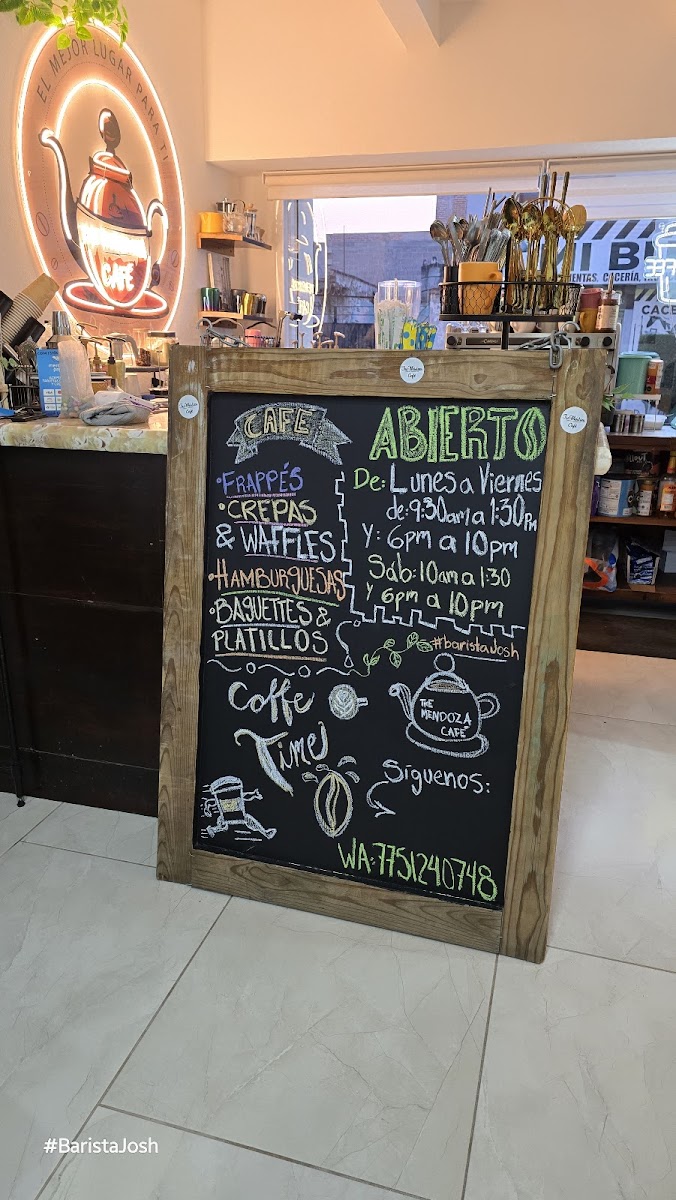 EL MEJOR LUGAR PARA TI
CAFÉ
The Mendoza Café
CAFE
ABIERTO
•FRAPPÉS
•CREPAS
& WAFFLES
•HAMBURGUESAS
•BAGUETTES &
PLATILLOS
De: Lunes a Viernes
de: 9:30am a 1:30 Pm
Y: 6pm a 10pm
Sab: 10am a 1:30
Y 6pm a 10pm
#baristaJosh
Coffe
Time
THE
MENDOZA
CAFE
Síguenos:
WA: 7751240748
#BaristaJosh